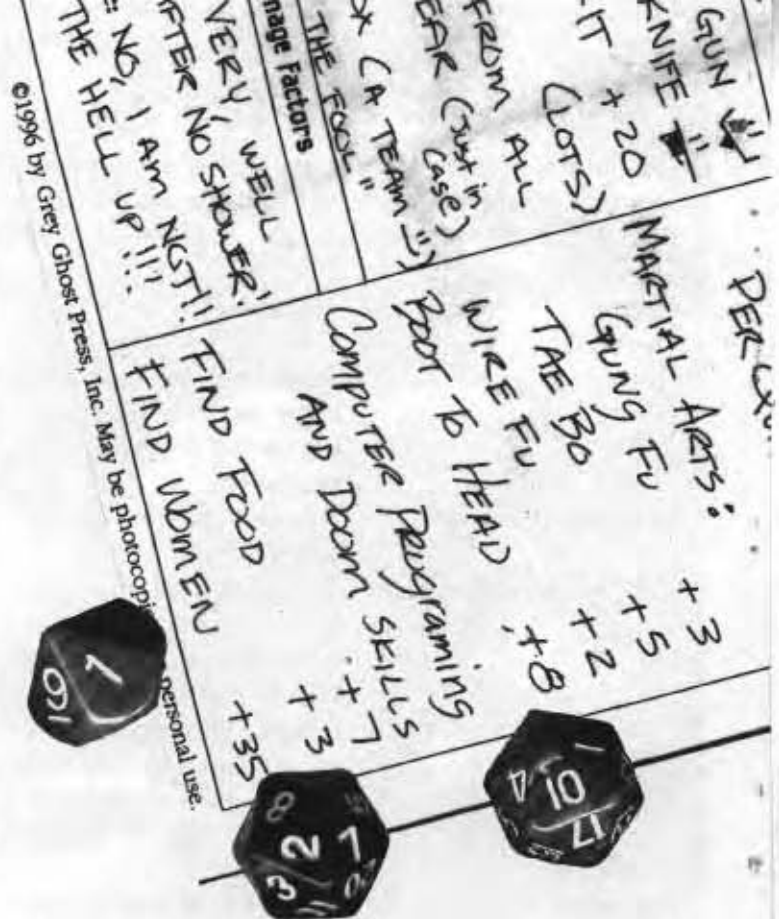 GUN
KNIFE
+20
(LOTS)
FROM ALL
(Just in
case)
(A TEAM
THE FOOL"
Factors
VERY, WELL
AFTER NO SHOWER!
NO, I AM NOT!!
THE HELL UP!!!
MARTIAL ARTS:
GUNG FU +3
TAE BO +5
WIRE FU +2
BOOT TO HEAD +8
COMPUTER PROGRAMING
AND DOOM SKILLS +7
FIND FOOD +3
FIND WOMEN +35
©1996 by Grey Ghost Press, Inc. May be personal use.
1
16
8
2
7
3
10
4
17
1